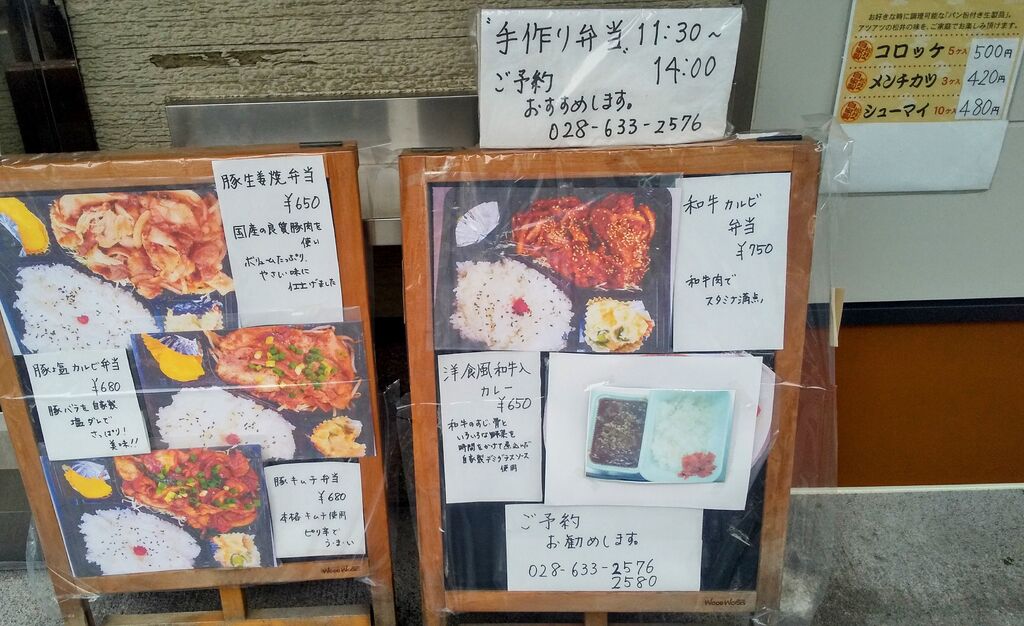 手作り弁当 11:30～
14:00
ご予約
おすすめします。
028-633-2576
お好きな時に調理可能な「パン粉付き生製品」。
アツアツの松井の味を、ご家庭でお楽しみ頂けます。
コロッケ 5ケ入 500円
メンチカツ 3ケ入 420円
シューマイ 10ケ入 480円
豚生姜焼弁当
¥650
国産の良質豚肉を
使い
ボリュームたっぷり、
やさしい味に
仕上げました
豚塩カルビ弁当
¥680
豚バラを自家製
塩ダレで
さっぱり!
美味!!
豚キムチ弁当
¥680
本格キムチ使用
ピリ辛で
う・ま・い
WOODWOSO
和牛カルビ
弁当
¥750
和牛肉で
スタミナ満点。
洋食風和牛入
カレー
¥650
和牛のすじ、骨と
いろいろな野菜を
時間をかけて煮込んだ
自家製デミグラスソース
使用
ご予約
お勧めします。
028-633-2576
2580